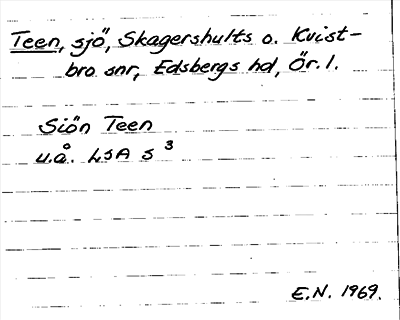 Teen, sjö, Skagershults o. Kvist-
bro snr, Edsbergs hd, Ör. l.
Siön Teen
u.å. LSA S 3
E.N. 1969.